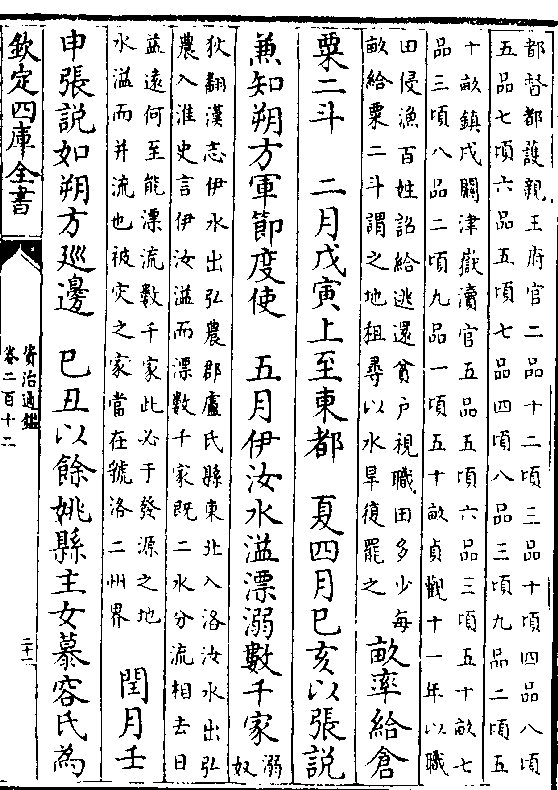 都督都護親王府官二品十二頃三品十頃四品八頃
五品七頃六品五頃七品四頃八品三頃九品二頃五
十畝鎮戍關津嶽瀆官五品五頃六品三頃五十畝七
品三頃八品二頃九品一頃五十畝貞觀十一年以職
田侵漁百姓詔給逃還貧戶視職田多少每
畝給粟二斗謂之地租尋以水旱復罷之
畝率給倉
粟二斗 二月戊寅上至東都 夏四月己亥以張説
兼知朔方軍節度使 五月伊汝水溢漂溺數千家
溺
奴
狄翻漢志伊水出弘農郡盧氏縣東北入洛汝水出弘
農入淮史言伊汝溢而漂數千家既二水分流相去日
益遠何至能漂流數千家此必于發源之地
水溢而并流也被灾之家當在虢洛二州界
閏月壬
申張説如朔方廵邊 己丑以餘姚縣主女慕容氏為
欽定四庫全書
資治通鑑
卷二百十二
二十一